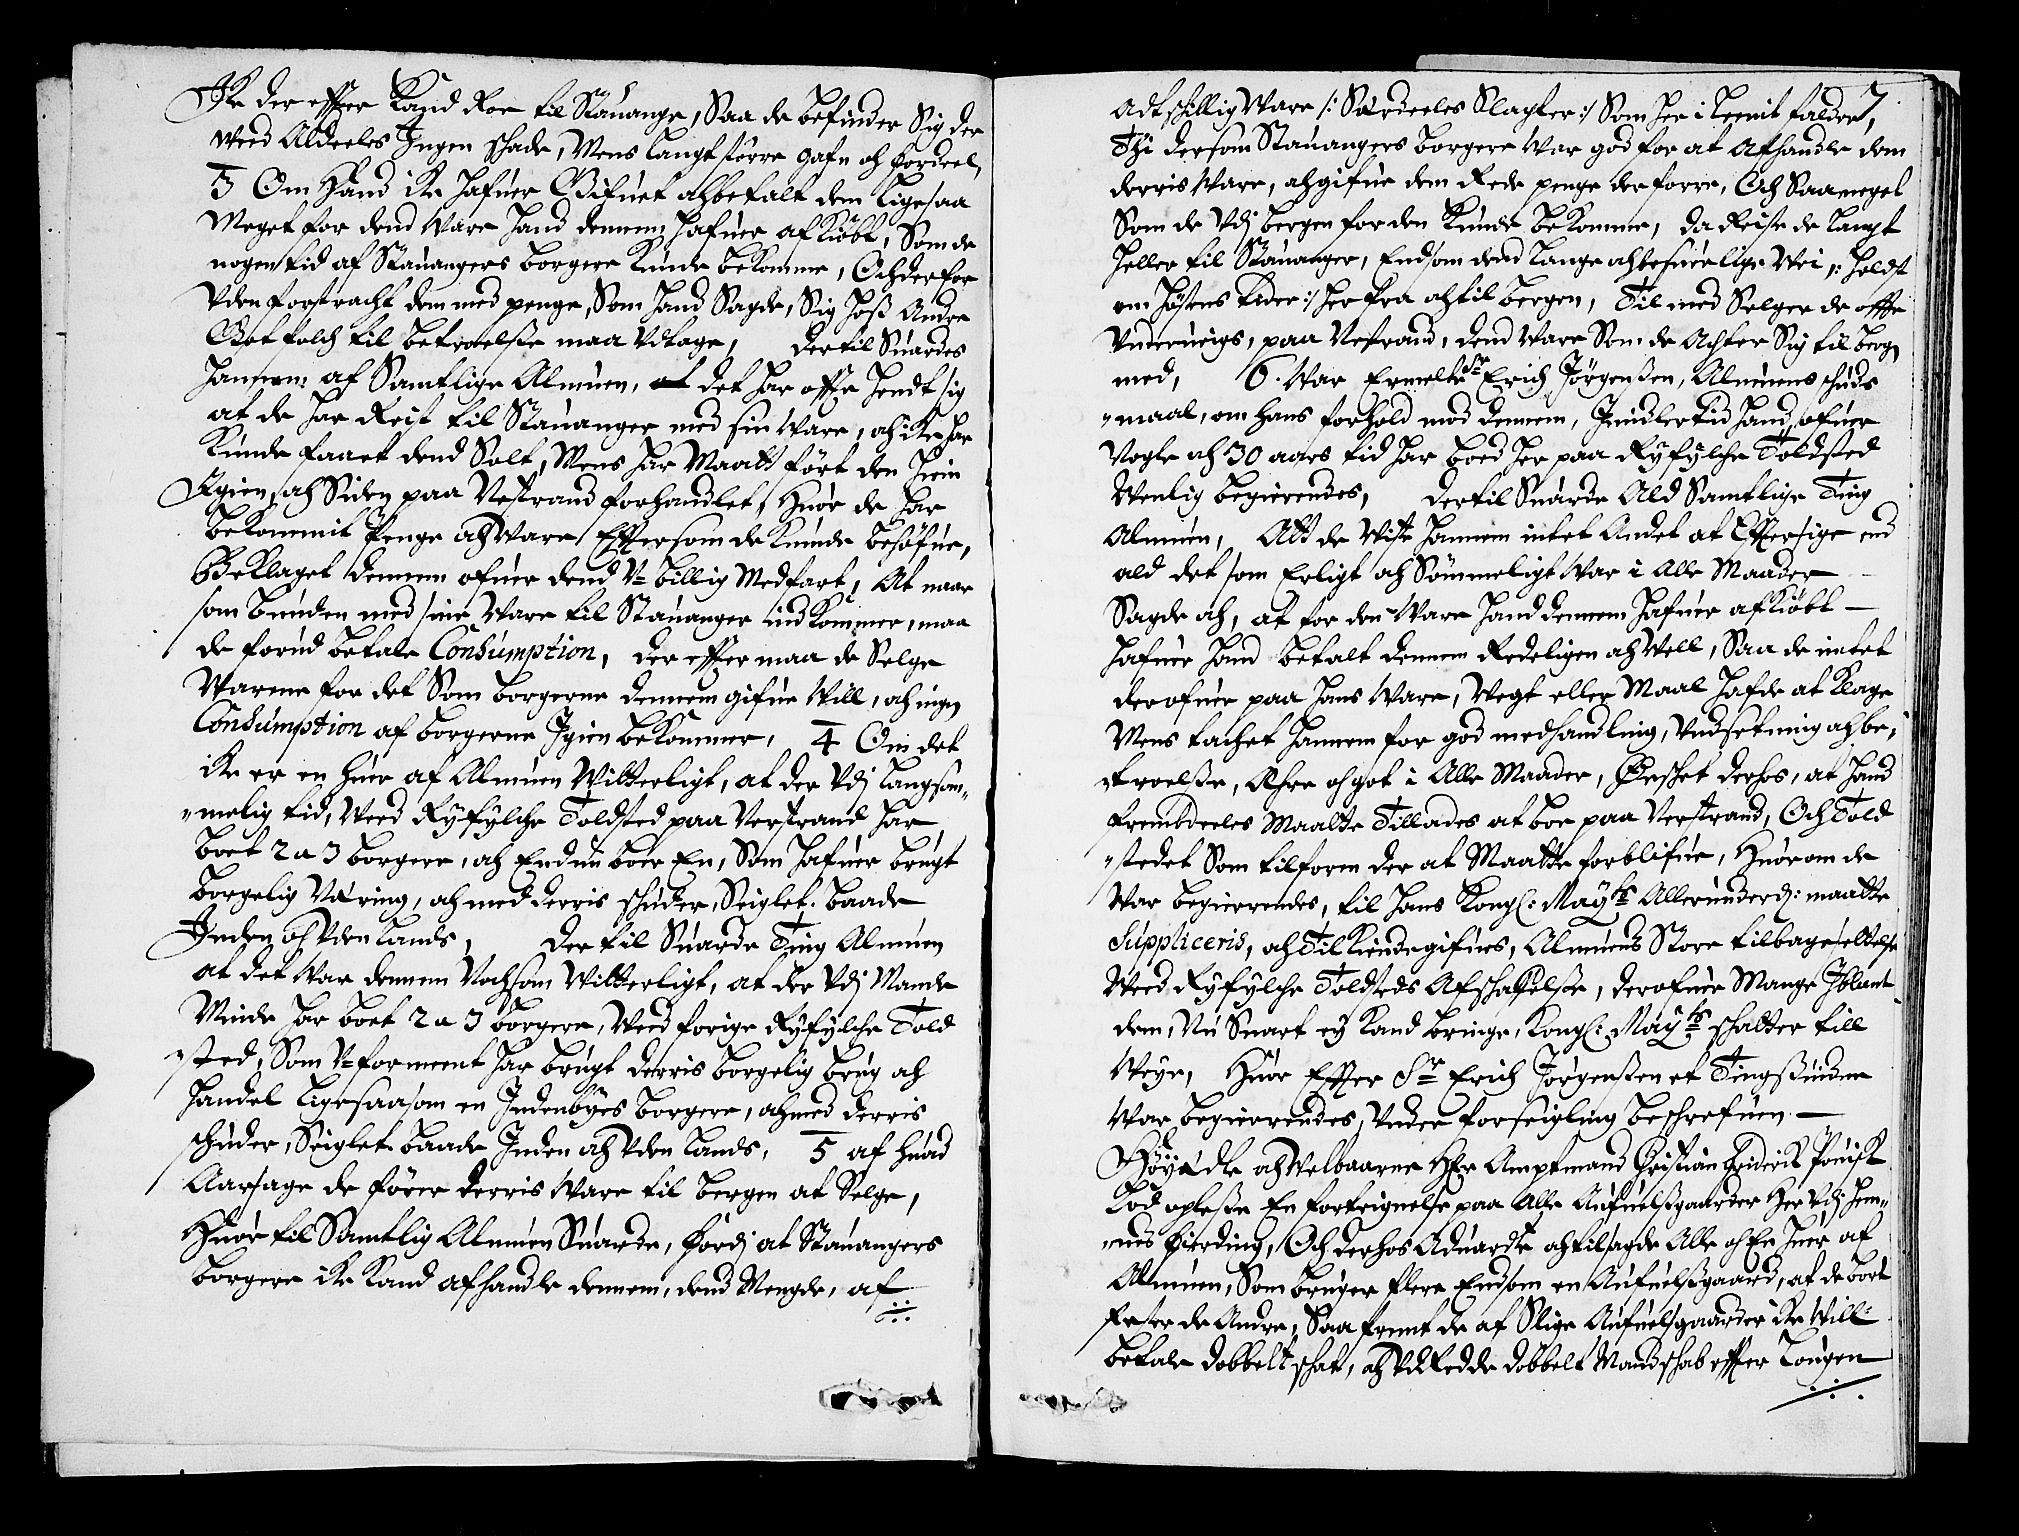 Ike der effter kand Roe til Stauange, Saa de befinder Sig der
weed Aldeeles Ingen schade, Mens langt større gafn och fordeel,
3 Om Hand ike hafuer Gifuet ohbetalt dem ligesaa
Meget for dend Ware hand dennem hafuer afkiøbt, Som de
nogen tid af Stauangers borgere kunde bekomme, Och der for
Vden forstracht dem med penge, Som hand Sagde, Sig hoß Andre
Got folch til betroelße maa Vdtage, Dertil Suardes
hannem af Samtlige Almuen, at det har offte hendt sig
at de har Reist til Stauanger med sin Ware, och ike har
kunde faaet dend Solt, Mens har Maatt ført den hiem
Igien, och Siden paa Nestrand forhandlet, huor de har
bekommit Penge och Ware Efftersom de kunde behøfue,
Beklaget dennem ofuer dend V= billig Medfart, At naar
som bunden med sine Ware til Stauanger ind kommer, maa
de forud betale Consumption, der effter maa de Selge
Warene for det Som borgerne dennem gifue will, och ingen
Consumption af borgerne Igien bekommer, 4 Om det
ike er en huer af Almuen Witterligt, at der Vdj langsom„
„melig tid, Weed Ryfylche Toldsted paa Nerstrand har
boet 2 a 3 borgere, och Endnu boer En, Som hafuer brugt
borgelig Næring, och med derris schuder, Seiglet baade
Inden och Vden lands, Der til Suarde Ting Almuen
at det War dennem Nochsom Witterligt, at der Vdj Mands
Minde har boet 2 a 3 borgere, Weed forige Ryfylche Told
„sted, Som V=forment har brugt derris borgelig brug och
handel ligesaasom en Indenbyes borgere, och med derris
schuder, Seiglet baade Inden och Vden lands, 5 af huad
Aarsage de fører derris Ware til bergen at Selge,
Huor til Samtlig Almuen Suarde, fordj at Stauangers
borgere ike kand afhandle dennem, dend Mengde, af
7
Adtskillig Ware /: Særdeeles Slagter :/ Som her i Leenit falder,
Thi dersom Stauangers borgere War god for at Afhandle dem
derris Ware, och gifue dem Rede penge derforre, Och Saa meget
Som de Vdj bergen for den kunde bekomme, da Reiste de langt
heller til Stauanger, End som dend lange och besuerlige Wei /: helst
om høstens tider :/ her fra och til bergen, Til med Selger de offte
Underueigs, paa Nestrand, dend Ware Som de Achter Sig til bergen
med, 6. War Ermelte Sr Erich Jørgenßen, Almuens schuds
„maal, om hans forhold mod dennem, Imidlertid hand, ofuer
Nogle och 30 aars tid har boed her paa Ryfylche Toldsted
Wenlig begierendes, dertil Suarde Ald Samtlige Ting
Almuen, Att de Wiste hannem intet Andet at Effter sige end
ald det som Erligt och Sømmeligt War i Alle Maader
Sagde och, at for den Ware hand dennem hafuer afkiøbt —
hafuer hand betalt dennem Redeligen och Well, Saa de intet
derofuer paa hans Ware, Wegt eller Maal hafde at klage
Mens tachet hannem for god medhandling, Undsetning och be„
„troelße, Ahre och got i Alle Maader, Ønschet derhos, at hand
frembdeeles Maatte Tillades at boe paa Nerstrand, Och Told
„stedet Som tilforn der at Maatte forblifue, Huorom de
War begierendes, til hans kongl: Maytts Allerunderd: maatte
Suppliceris, och Tilkiendegifues, Almuens Store tilbagesettelße
Weed Ryfylche Toldsteds Afschaffelße, derofuer Mange Iblant
dem, Nu Snart ey kand bringe, Kongl: Maytts schatter till
Weye, Huor Effter Sr Erich Jørgenßen et Tingßuidne
War begierendes, Under forseigling beschrefuen. —
Høyædle och Welbaarne Hr Amptmand Christian Friderich Pöuisch
Lod opleße En forteignelße paa Alle Aufuelßgaarder Her Vdj Jem„
„nes fierding, Och derhos Aduarede och tilsagde Alle och En huer af
Almuen, Som bruger flere End som en Aufuelßgaard, at de bort
fester de Andre, Saa fremt de af Slige Aufuelsgaarder ike Will
betale dobbelt schat, och Vdredde dobbelt Mandschab effter lougen